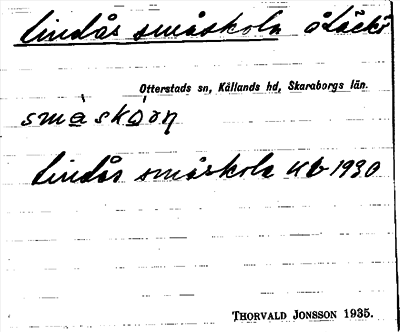 Lindås småskola
Otterstads sn, Kållands hd, Skaraborgs län.
Lindås småskola
1930
THORVALD JONSSON 1935.